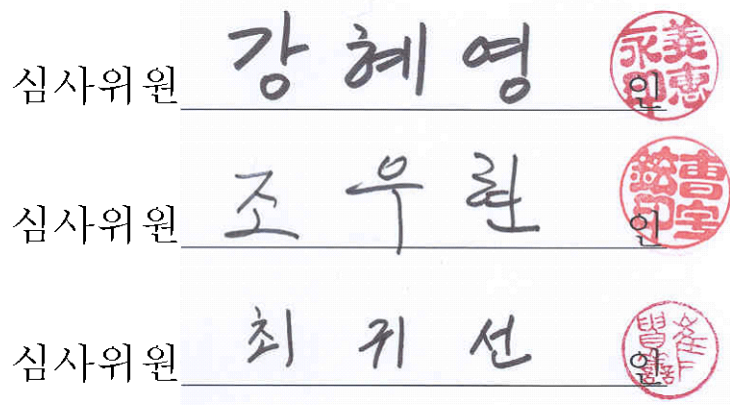 심사위원 강혜영 인
심사위원 조우현 인
심사위원 최귀선 인